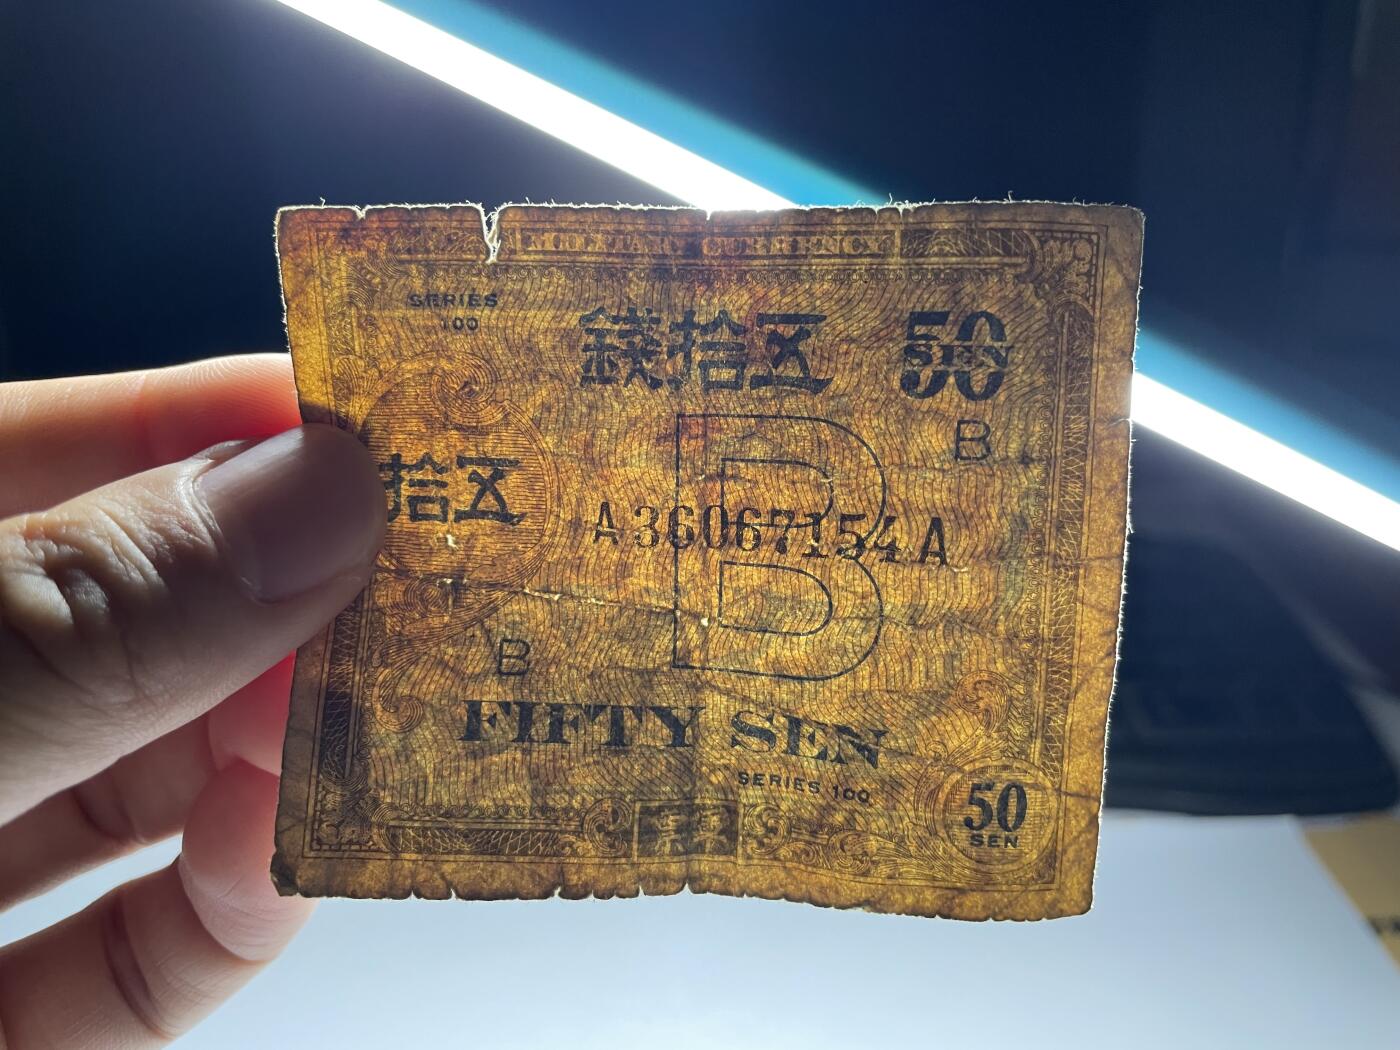 MILITARY CURRENCY
SERIES
100
錢拾五
50
SEN
B
拾五
B
A36067154A
B
FIFTY SEN
SERIES 100
50
SEN